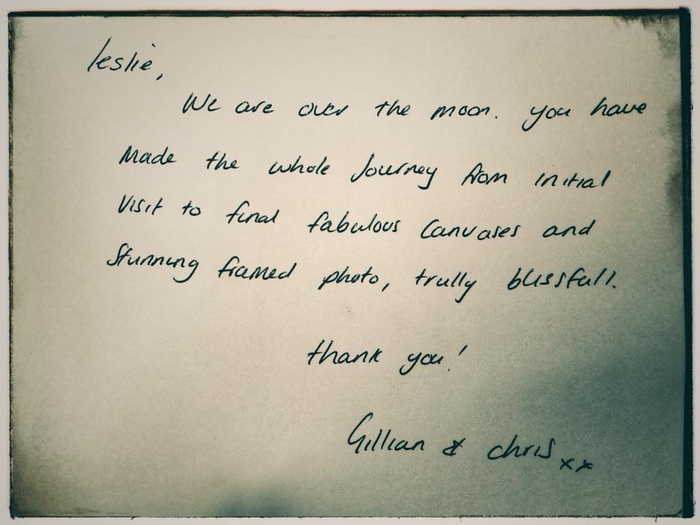 leslie,
We are over the moon. you have
Made the whole Journey from initial
Visit to final fabulous Canvases and
Stunning framed photo, trully blissfull.
thank you!
Gillian & chris xx